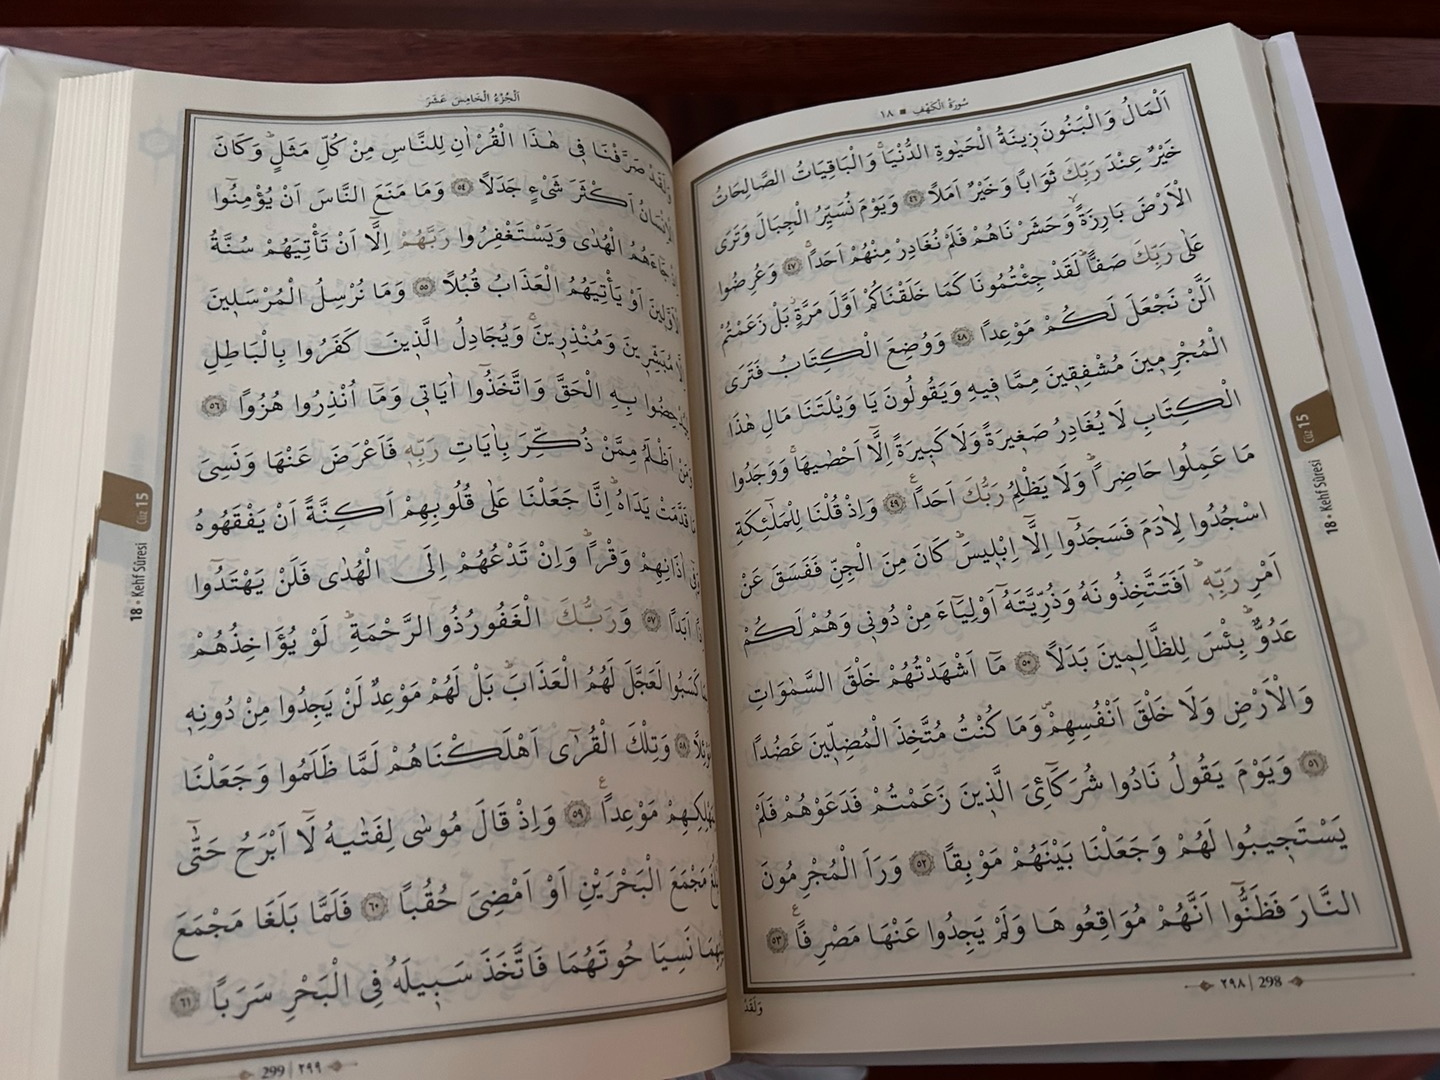 سُورَةُ الْكَهْفِ ■ ١٨
اَلْمَالُ وَالْبَنُونَ زِينَةُ الْحَيٰوةِ الدُّنْيَاۚ وَالْبَاقِيَاتُ الصَّالِحَاتُ
خَيْرٌ عِنْدَ رَبِّكَ ثَوَابًا وَخَيْرٌ اَمَلًا ﴿٤٦﴾ وَيَوْمَ نُسَيِّرُ الْجِبَالَ وَتَرَى
الْاَرْضَ بَارِزَةًۙ وَحَشَرْنَاهُمْ فَلَمْ نُغَادِرْ مِنْهُمْ اَحَدًاۚ ﴿٤٧﴾ وَعُرِضُوا
عَلٰى رَبِّكَ صَفًّاۜ لَقَدْ جِئْتُمُونَا كَمَا خَلَقْنَاكُمْ اَوَّلَ مَرَّةٍۘ بَلْ زَعَمْتُمْ
اَلَّنْ نَجْعَلَ لَكُمْ مَوْعِدًا ﴿٤٨﴾ وَوُضِعَ الْكِتَابُ فَتَرَى
الْمُجْرِمِينَ مُشْفِقِينَ مِمَّا فِيهِ وَيَقُولُونَ يَا وَيْلَتَنَا مَالِ هٰذَا
الْكِتَابِ لَا يُغَادِرُ صَغِيرَةً وَلَا كَبِيرَةً اِلَّٓا اَحْصٰيهَاۚ وَوَجَدُوا
مَا عَمِلُوا حَاضِرًاۜ وَلَا يَظْلِمُ رَبُّكَ اَحَدًا۟ ﴿٤٩﴾ وَاِذْ قُلْنَا لِلْمَلٰٓئِكَةِ
اسْجُدُوا لِاٰدَمَ فَسَجَدُٓوا اِلَّٓا اِبْلِيسَۜ كَانَ مِنَ الْجِنِّ فَفَسَقَ عَنْ
اَمْرِ رَبِّهِۜ اَفَتَتَّخِذُونَهُ وَذُرِّيَّتَهُٓ اَوْلِيَٓاءَ مِنْ دُونِي وَهُمْ لَكُمْ
عَدُوٌّۜ بِئْسَ لِلظَّالِمِينَ بَدَلًا ﴿٥٠﴾ مَٓا اَشْهَدْتُهُمْ خَلْقَ السَّمٰوَاتِ
وَالْاَرْضِ وَلَا خَلْقَ اَنْفُسِهِمْۖ وَمَا كُنْتُ مُتَّخِذَ الْمُضِلِّينَ عَضُدًا
﴿٥١﴾ وَيَوْمَ يَقُولُ نَادُوا شُرَكَٓائِيَ الَّذِينَ زَعَمْتُمْ فَدَعَوْهُمْ فَلَمْ
يَسْتَجِيبُوا لَهُمْ وَجَعَلْنَا بَيْنَهُمْ مَوْبِقًا ﴿٥٢﴾ وَرَاَ الْمُجْرِمُونَ
النَّارَ فَظَنُّٓوا اَنَّهُمْ مُوَاقِعُوهَا وَلَمْ يَجِدُوا عَنْهَا مَصْرِفًا۟ ﴿٥٣﴾
وَلَقَدْ
٢٩٨ | 298
Cüz 15
18 • Kehf Sûresi
اَلْجُزْءُ الْخَامِسَ عَشَرَ
صَرَّفْنَا فِي هٰذَا الْقُرْاٰنِ لِلنَّاسِ مِنْ كُلِّ مَثَلٍۜ وَكَانَ
اَكْثَرَ شَيْءٍ جَدَلًا ﴿٥٤﴾ وَمَا مَنَعَ النَّاسَ اَنْ يُؤْمِنُٓوا
الْهُدٰى وَيَسْتَغْفِرُوا رَبَّهُمْ اِلَّٓا اَنْ تَأْتِيَهُمْ سُنَّةُ
اَوْ يَأْتِيَهُمُ الْعَذَابُ قُبُلًا ﴿٥٥﴾ وَمَا نُرْسِلُ الْمُرْسَلِينَ
مُبَشِّرِينَ وَمُنْذِرِينَۚ وَيُجَادِلُ الَّذِينَ كَفَرُوا بِالْبَاطِلِ
بِهِ الْحَقَّ وَاتَّخَذُٓوا اٰيَاتِي وَمَٓا اُنْذِرُوا هُزُوًا ﴿٥٦﴾
اَظْلَمُ مِمَّنْ ذُكِّرَ بِاٰيَاتِ رَبِّهِ فَاَعْرَضَ عَنْهَا وَنَسِيَ
قَدَّمَتْ يَدَاهُۜ اِنَّا جَعَلْنَا عَلٰى قُلُوبِهِمْ اَكِنَّةً اَنْ يَفْقَهُوهُ
اٰذَانِهِمْ وَقْرًاۜ وَاِنْ تَدْعُهُمْ اِلَى الْهُدٰى فَلَنْ يَهْتَدُٓوا
اَبَدًا ﴿٥٧﴾ وَرَبُّكَ الْغَفُورُ ذُو الرَّحْمَةِۜ لَوْ يُؤَاخِذُهُمْ
كَسَبُوا لَعَجَّلَ لَهُمُ الْعَذَابَۜ بَلْ لَهُمْ مَوْعِدٌ لَنْ يَجِدُوا مِنْ دُونِهِ
﴿٥٨﴾ وَتِلْكَ الْقُرٰٓى اَهْلَكْنَاهُمْ لَمَّا ظَلَمُوا وَجَعَلْنَا
مَوْعِدًا۟ ﴿٥٩﴾ وَاِذْ قَالَ مُوسٰى لِفَتٰيهُ لَٓا اَبْرَحُ حَتّٰٓى
مَجْمَعَ الْبَحْرَيْنِ اَوْ اَمْضِيَ حُقُبًا ﴿٦٠﴾ فَلَمَّا بَلَغَا مَجْمَعَ
نَسِيَا حُوتَهُمَا فَاتَّخَذَ سَبِيلَهُ فِي الْبَحْرِ سَرَبًا ﴿٦١﴾
299 | ٢٩٩
Cüz 15
18 • Kehf Sûresi